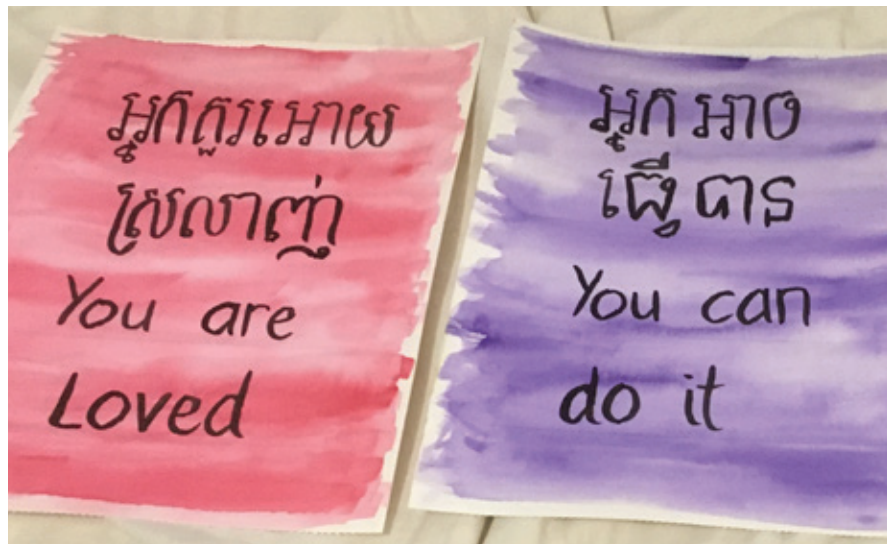 អ្នកគួរអោយ
ស្រលាញ់
You are
Loved
អ្នកអាច
ធ្វើបាន
You can
do it